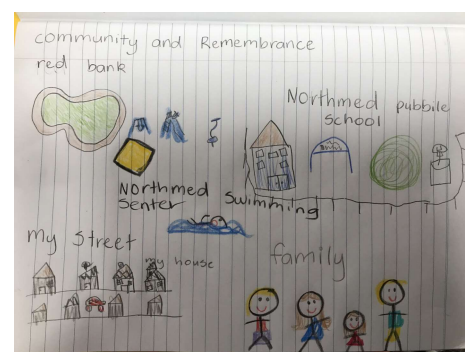 community and Remembrance
red bank
Northmed pubbile
school
Northmed
Senter
Swimming
my street
my house
family